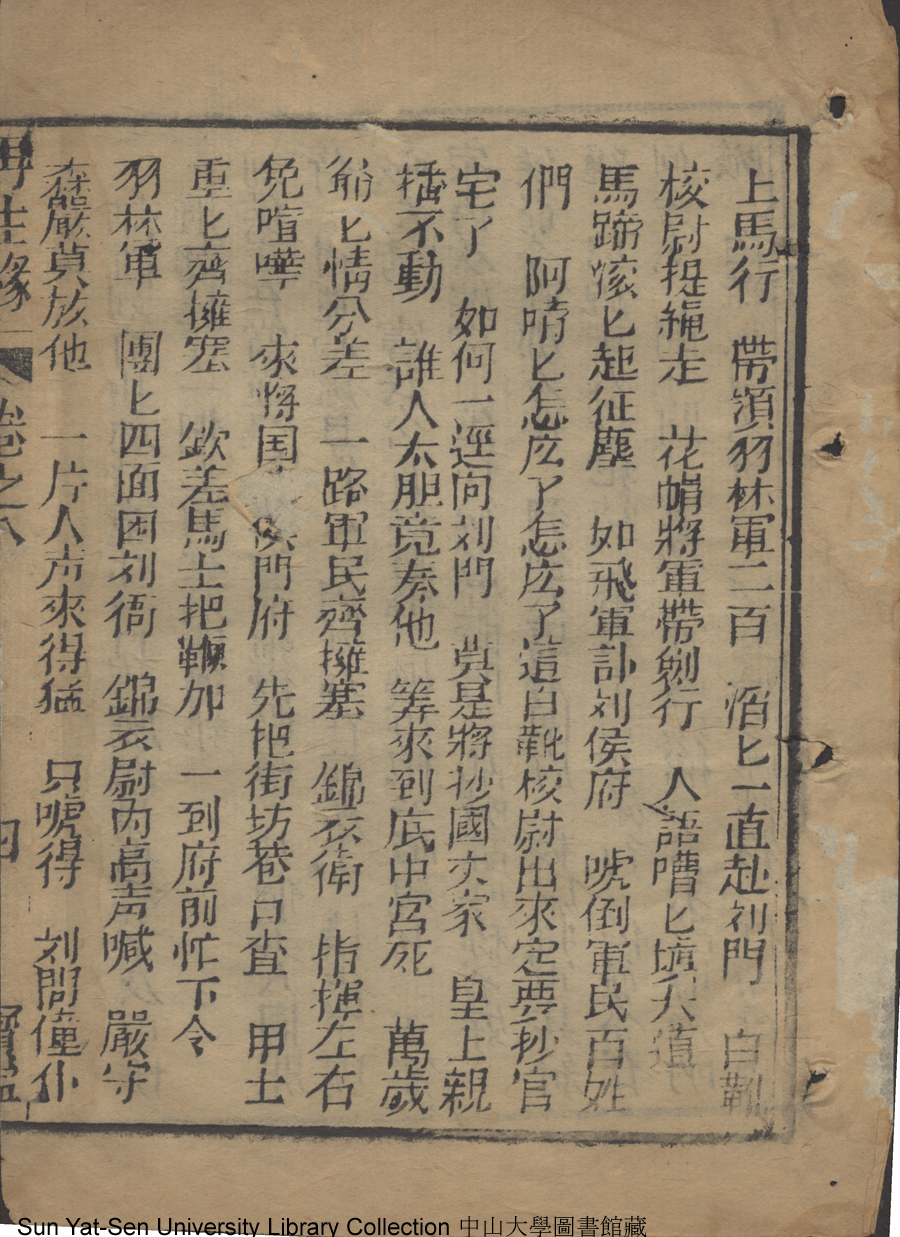 上馬行　帶領羽林軍二百　滔匕一直赴刘門　白靴
校尉捉繩走　花帽將軍帶劍行　人語嘈匕填道
馬蹄滚匕起征塵　如飛軍訃刘侯府　唬倒軍民百姓
們　阿唷匕怎庅了怎庅了這白靴校尉出來定要抄官
宅了　如何一逕向刘門　莫是將抄國丈家　皇上親
揺不動　誰人大胆竟奏他　筭來到底中宮死　萬歲
翁匕情分差　一路軍民齊擁塞　錦衣衛　指揮左右
免喧嘩　來將国侯門府　先把街坊巷口查　甲士
重匕齊擁塞　欽差馬上把鞭加　一到府前忙下令
羽林軍　團匕四面困刘衙　錦衣尉內高声喊　嚴守
森嚴莫放他　一片人声來得猛　只唬得　刘門僮仆
再生緣　卷之八　四
Sun Yat-Sen University Library Collection 中山大學圖書館藏